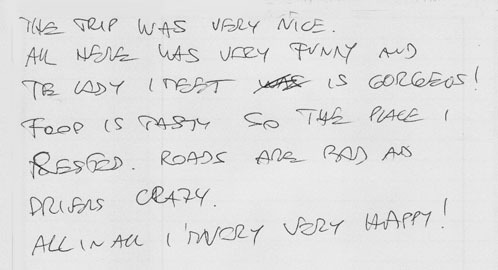 THE TRIP WAS VERY NICE.
ALL HERE WAS VERY FUNNY AND
TE LADY I MEET WAS IS GORGEOS!
FOOD IS TASTY SO THE PLACE I
RESTED. ROADS ARE BAD AS
DRIVERS CRAZY.
ALL IN ALL I'M VERY VERY HAPPY!